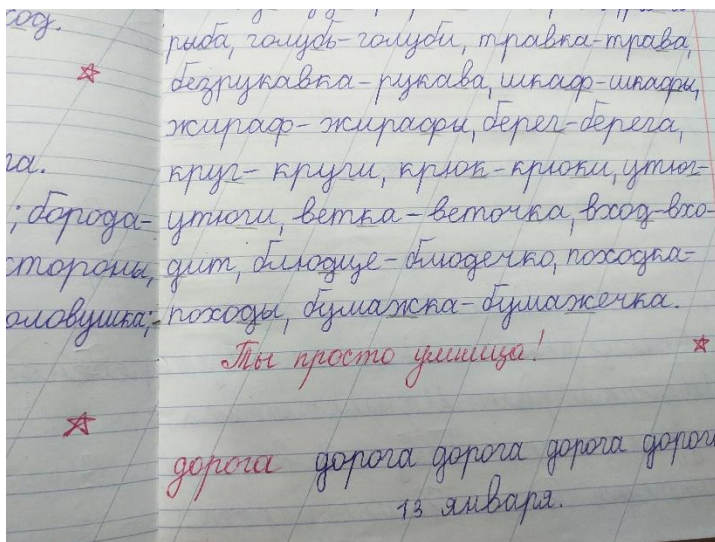 ход.
рыба, голубь-голуби, травка-трава,
безрукавка-рукава, шкаф-шкафы,
жираф-жирафы, берег-берега,
га.
круг-круги, крюк-крюки, утюг-
; борода-
утюги, ветка-веточка, вход-вхо-
стороны,
дит, блюдце-блюдечко, походка-
оловушка;
походы, бумажка-бумажечка.
Ты просто умница!
дорога дорога дорога дорога дорог
13 января.